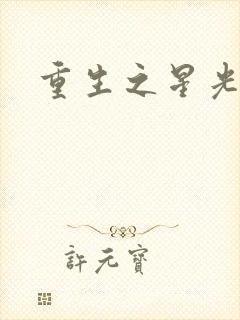 重生之星光
許元寶